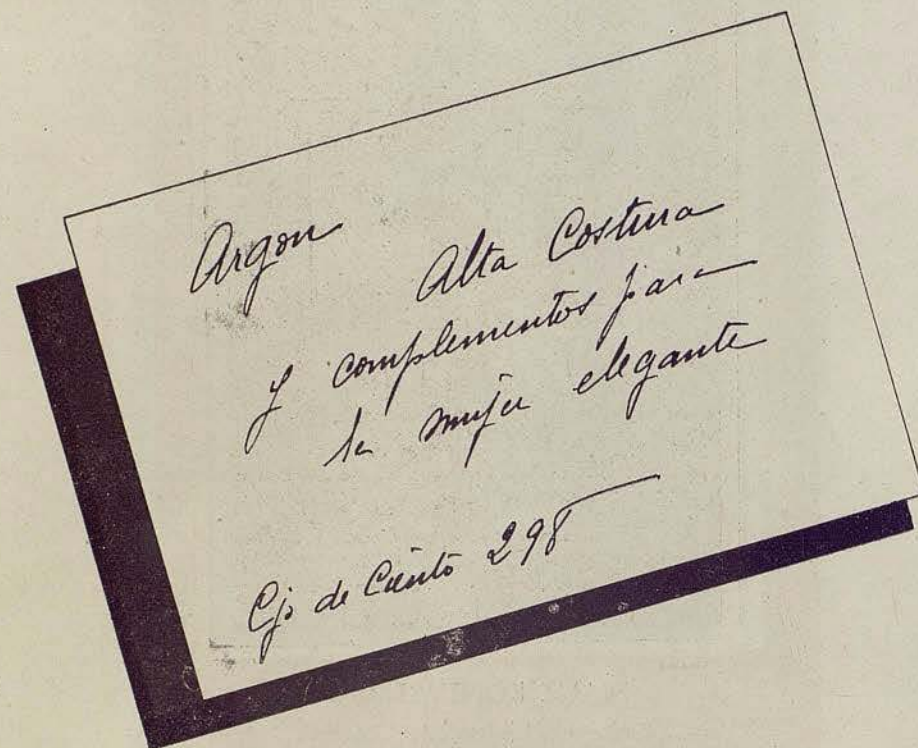 Argon
Alta Costura
y complementos para
la mujer elegante
Cjo de Ciento 298